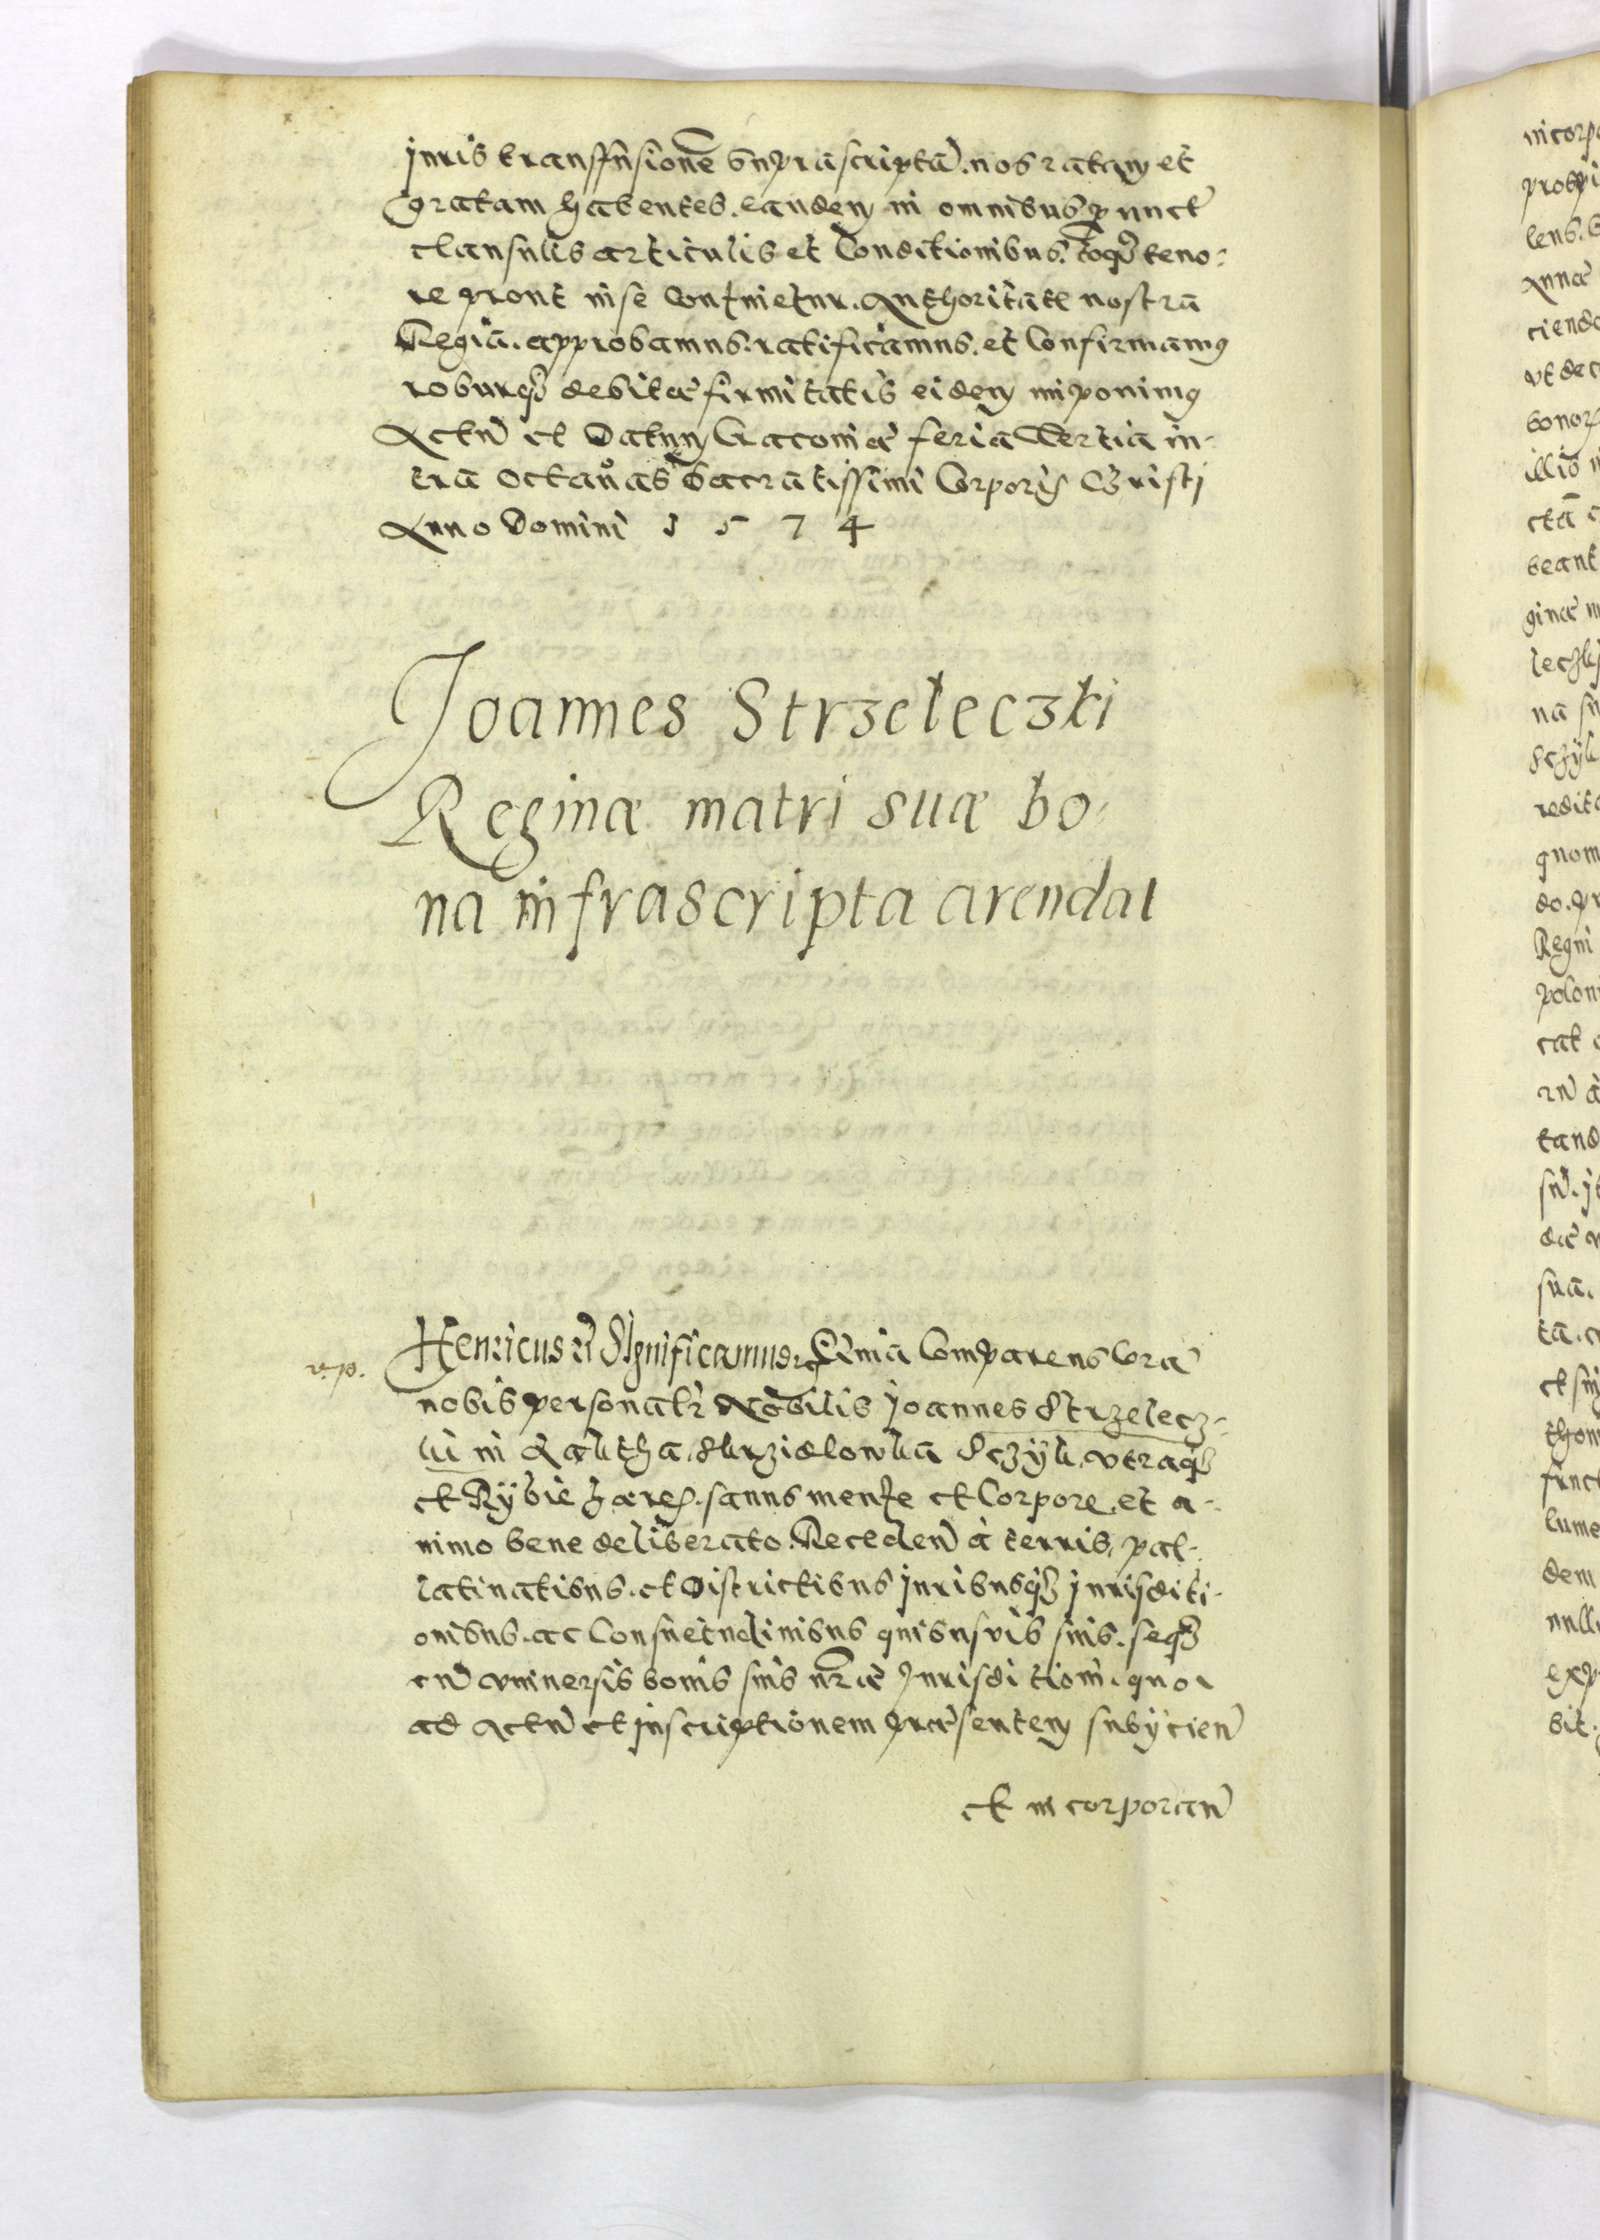 juris transfusionē supra scriptā. nos ratam et
gratam habentes. eandem in omnibus punct
clausulis articulis et Conditionibus. toq teno-
re prout in se Continetur. Authoritate nostra
Regia. approbamus. ratificamus. et Confirmamus
roburq debitæ firmitatis eidem imponimus
Actū et Datum Cracoviæ feria Tertia in-
tra Octavas Sacratissimi Corporis Christi
Anno Domini 1574
Joannes Strzeleczki
Reginæ matri suæ bo-
na infrascripta arendat
v. p.
Henricus Significamus Quia Comparens Corā
nobis personalr Nobilis Joannes Strzelecz-
ki in Skrzidlowka Sczyk. utraq
et Rybie hæres. sanus mente et Corpore. et a-
nimo bene deliberato. Recedeñ à terris, pal-
latinatibus. et Districtibus Juribusq Jurisditi-
onibus. ac Consuetudinibus quibusvis suis. seq
cū universis bonis suis nræ Jurisditioni. quo
ad Actū et inscriptionem præsentem subijcieñ
et incorporañ
incorpo
lens.
Annæ
ciendo
ut de
illiō
ctā
beant
ginæ
na
redita
gnom
do. pr
Regni
poloni
cat
tand
suā.
tā.
thom
lume
dem
nulli
exp
bit.